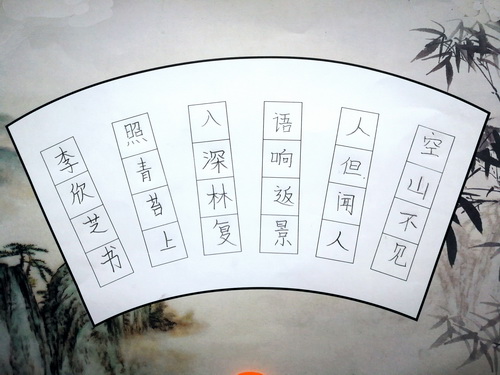 空山不见
人但闻人
语响返景
入深林复
照青苔上
李欣芝书